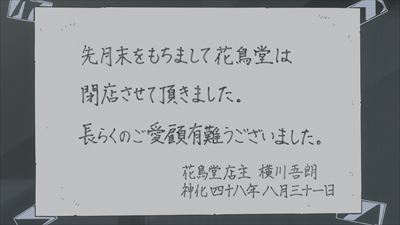 先月末をもちまして花鳥堂は
閉店させて頂きました。
長らくのご愛顧有難うございました。
花鳥堂店主 横川吾朗
神化四十八年八月三十一日